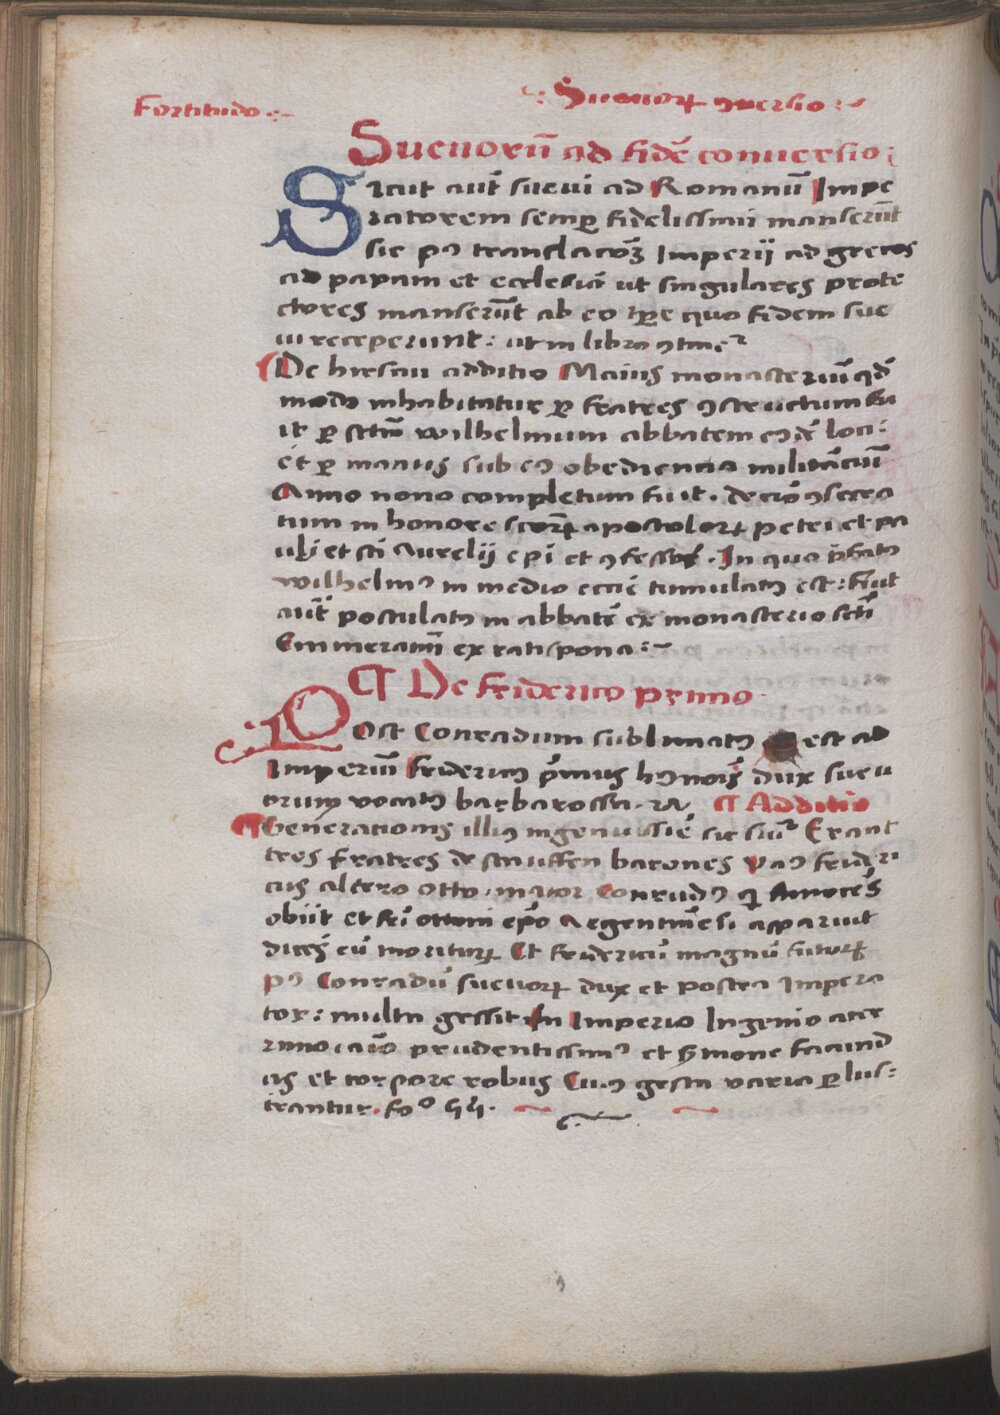 Fortitudo
Sueuorꝝ ꝯuersio
Sueuorū ad fidē conuersio
Sicut aut̄ sueui ad Romanū Impe
ratorem semꝑ fidelissimi manserūt
sic pꝰ translacōꝫ Imperij ad grecos
ad papam et ecclesiā ut singulares prote
ctores manserūt ab eo tꝑe quo fidem sue
ui receperunt: ut in libro ꝯtinet᷑
De hirsau additio Maius monasteriū qd̄
modo inhabitatur ꝑ fratres ꝯstructum fu
it ꝑ sctm̄ wilhelmum abbatem eꝰdē loci:
et ꝑ manus sub eꝰ obediencia militāciū
Anno nono completum fuit. ꝯsecra
tum in honore sctorꝝ apostolorꝝ petri et pa
uli et sci Aurelij epi et ꝯfessoris. In quo p̄fatꝰ
wilhelmꝰ in medio eccīe tumulatꝰ est: fuit
aut̄ postulatꝰ in abbatē ex monasterio scti
Emmerammi ex ratispona:
¶ De friderico primo
Post Conradum sublimatꝰ est ad
Imperiū fridericus p̄mus hꝰ nōis dux sueu
orum vocatꝰ barbarossa. ¶ Additio
Generationis illiꝰ sic Erant
tres fratres de stauffen barones vnꝰ frideri
cus alter otto, maior Conradꝰ qi
obijt et fri ottoni epō Argentinēsi apparuit
dicēs eū moriturꝝ Et fridericū magnū futurꝝ
pꝰ Conradū sueuorꝝ dux et postea Impera
tor: multa gessit In Imperio Ingenio acer
rimo prudentissimꝰ et sermone facund
us et corpore robus Cuiꝰ gesta varia ꝑlus:
trantur. fo